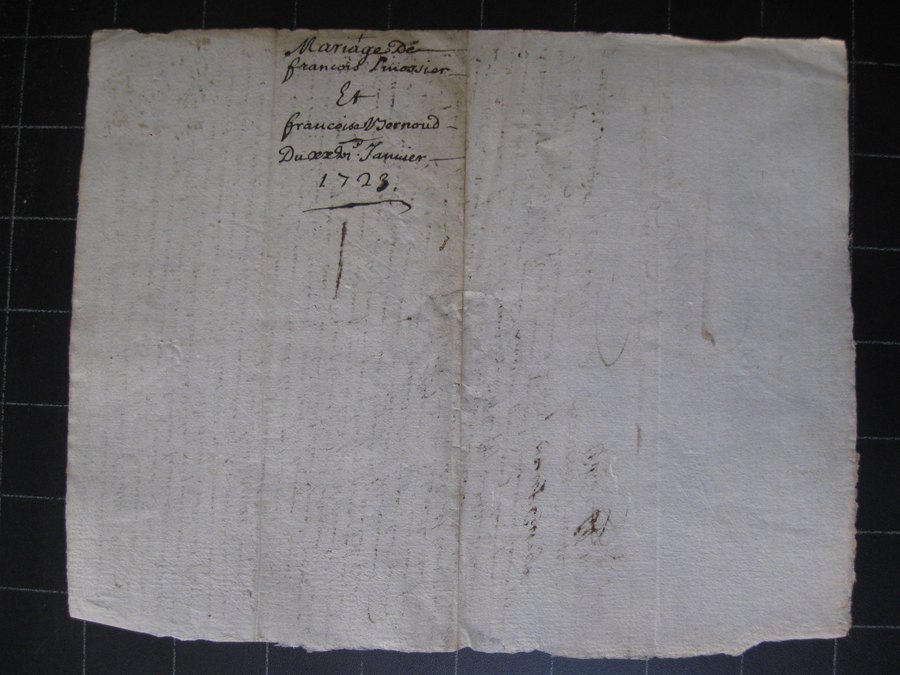 Mariage De
francois Linossier
Et
francoise Vernoud
Du xxvi.e Janvier
1723.